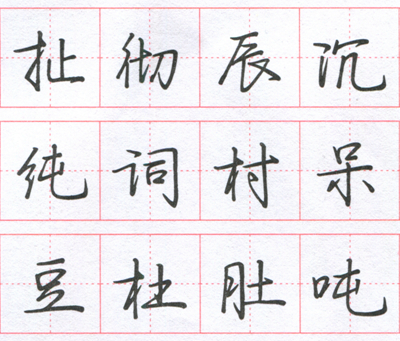 扯彻辰沉
纯词村呆
豆杜肚吨